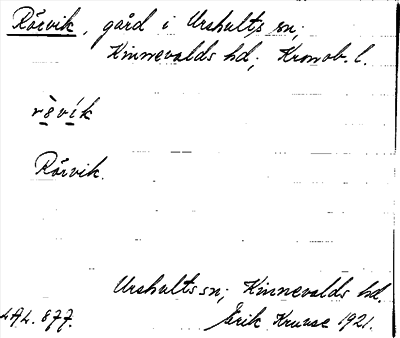 Rörvik, gård i Urshults sn;
Kinnevalds hd; Kronob. l.
rèvík
Rörvik.
Urshults sn; Kinnevalds hd.
LAL. 877. Erik Kruuse 1921.